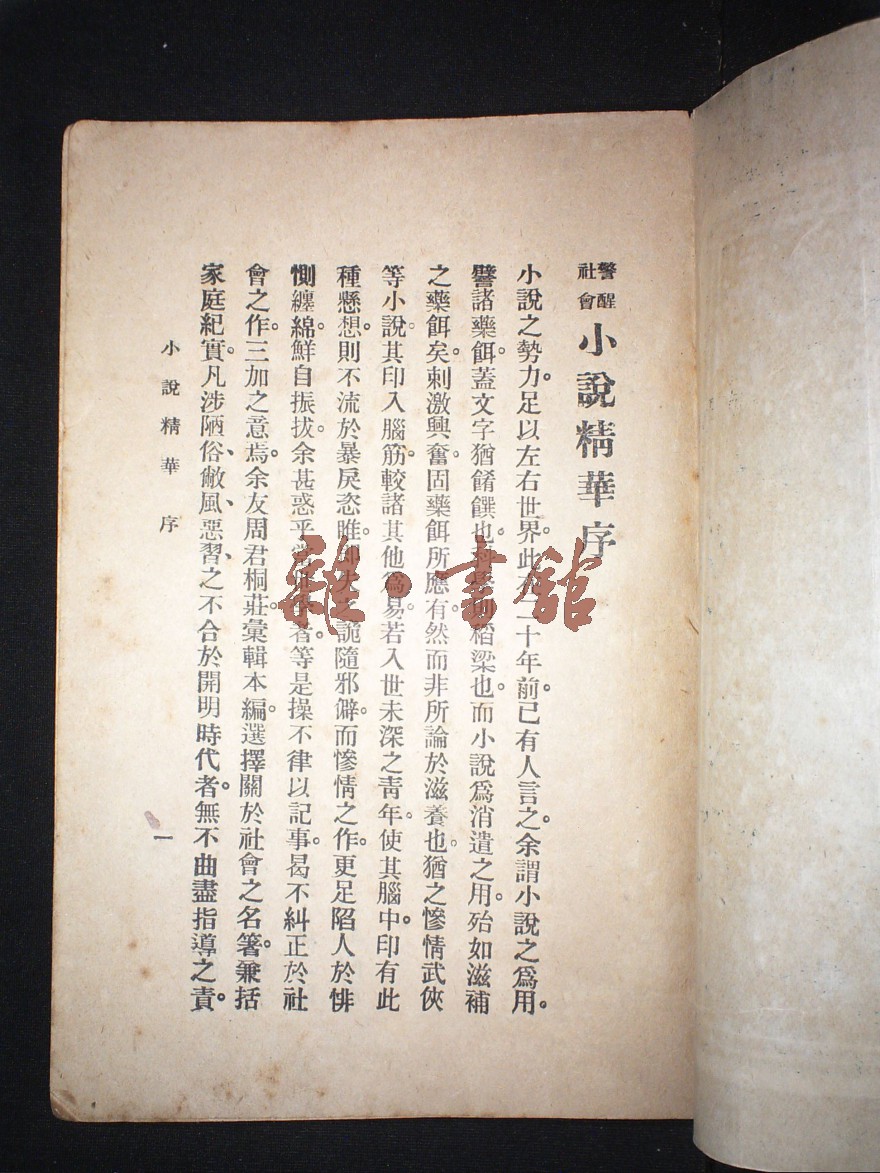 警醒社會小說精華序
小說之勢力。足以左右世界。此在二十年前。已有人言之。余謂小說之爲用。
譬諸藥餌。蓋文字猶餚饌也。稻粱也。而小說爲消遣之用。殆如滋補
之藥餌矣。刺激興奮。固藥餌所應有。然而非所論於滋養也。猶之慘情武俠
等小說。其印入腦筋。較諸其他爲易。若入世未深之靑年。使其腦中。印有此
種懸想。則不流於暴戾恣睢。詭隨邪僻。而慘情之作。更足陷人於悱
惻纏綿。鮮自振拔。余甚惑乎者。等是操不律以記事。曷不糾正於社
會之作。三加之意焉。余友周君桐莊。彙輯本編。選擇關於社會之名箸。兼括
家庭紀實。凡涉陋俗、敝風、惡習、之不合於開明時代者。無不曲盡指導之責。
小說精華 序
一
雜·書館